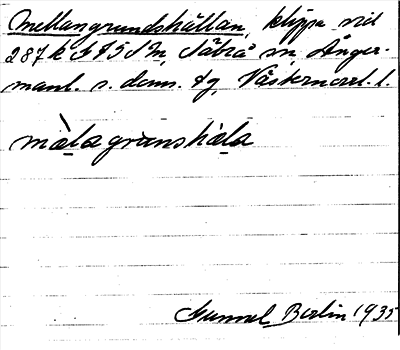 Mellangrundshällan, klippa vid
287 k S f S I N, Säbrå sn, Ånger-
manl. s. doms. tg Västernorrl. l.
màlagrùnshàla
Gunnel Berlin 1935